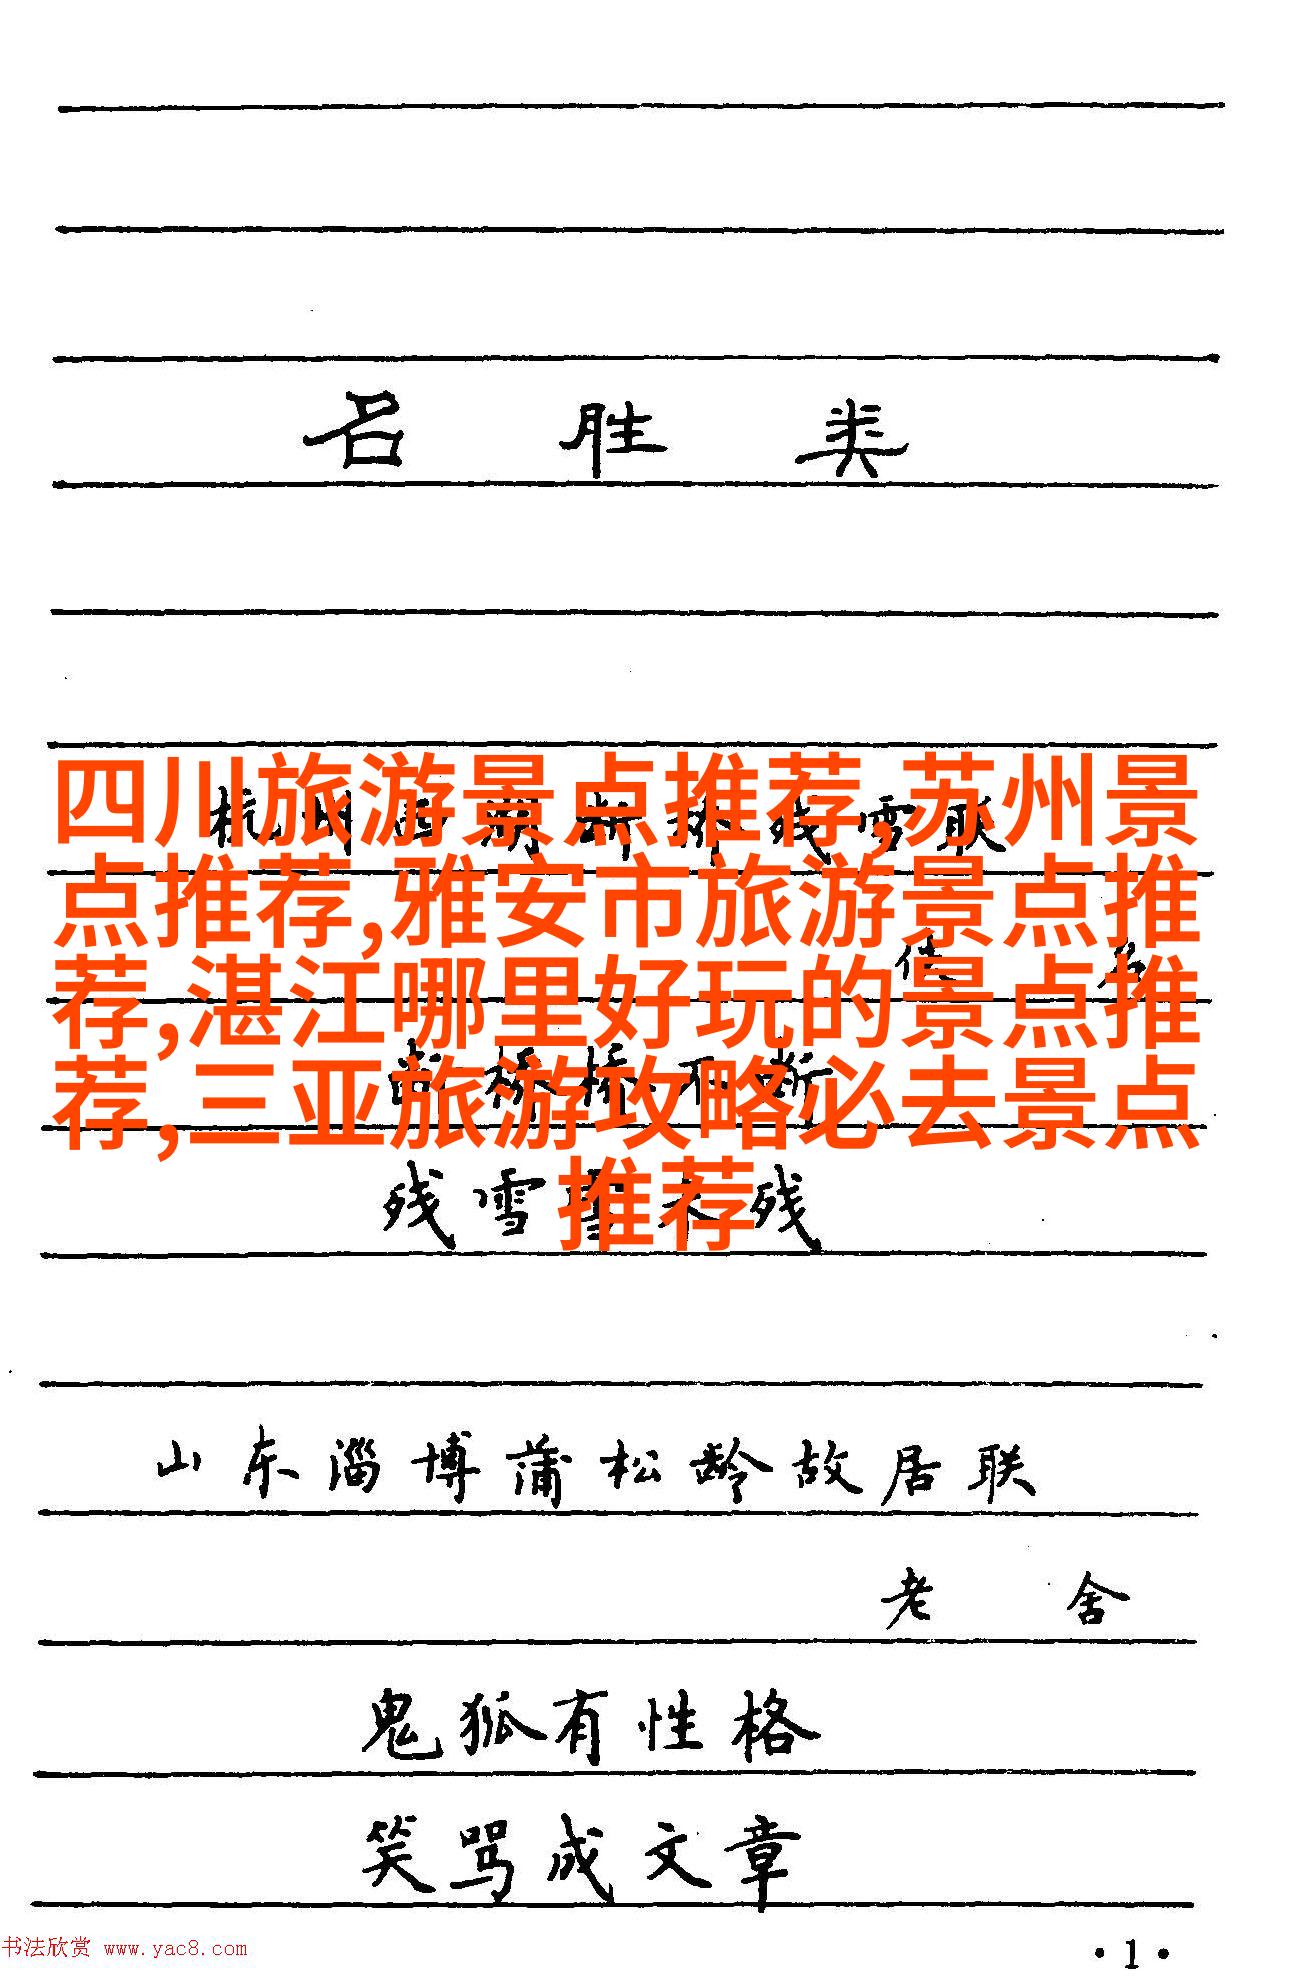 名胜类
杭州西湖断桥残雪联
四川旅游景点推荐,苏州景
点推荐,雅安市旅游景点推
荐,湛江哪里好玩的景点推
荐,三亚旅游攻略必去景点
推荐
断桥桥不断
残雪雪未残
山东淄博蒲松龄故居联
老舍
鬼狐有性格
笑骂成文章
书法欣赏 www.yac8.com
·1·